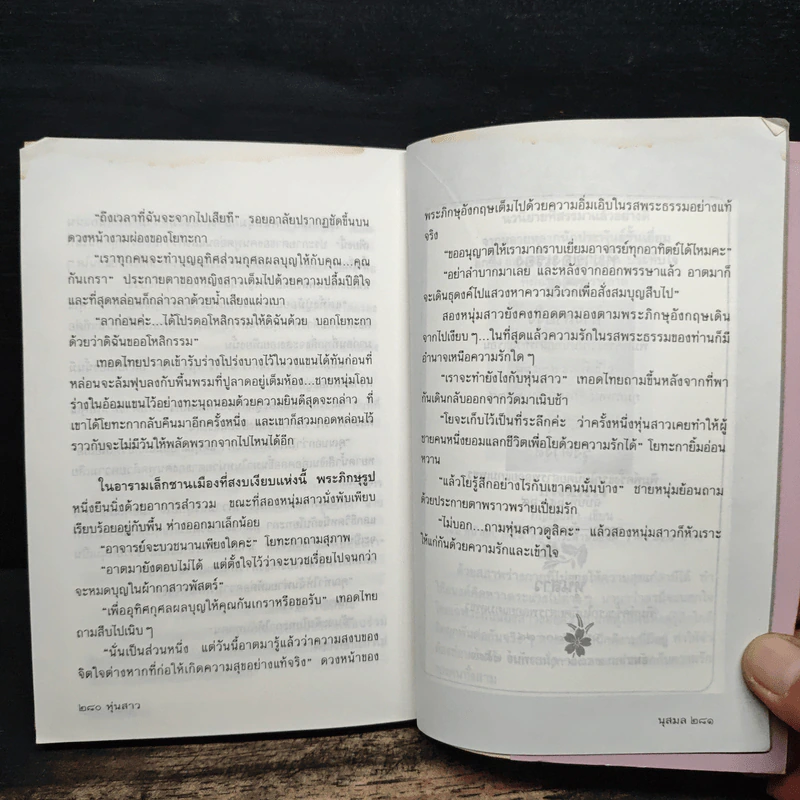 "ถึงเวลาที่ฉันจะจากไปเสียที" รอยอาลัยปรากฏชัดขึ้นบน
ดวงหน้างามผ่องของโยทะกา
"เราทุกคนจะทำบุญอุทิศส่วนกุศลผลบุญให้กับคุณ...คุณ
กันเกรา" ประกายตาของหญิงสาวเต็มไปด้วยความปลื้มปีติใจ
และที่สุดหล่อนก็กล่าวลาด้วยน้ำเสียงแผ่วเบา
"ลาก่อนค่ะ...ได้โปรดอโหสิกรรมให้ดิฉันด้วย บอกโยทะกา
ด้วยว่าดิฉันขออโหสิกรรม"
เทอดไทยปราดเข้ารับร่างโปร่งบางไว้ในวงแขนได้ทันก่อนที่
หล่อนจะล้มฟุบลงกับพื้นพรมที่ปูลาดอยู่เต็มห้อง...ชายหนุ่มโอบ
ร่างในอ้อมแขนไว้อย่างทะนุถนอมด้วยความยินดีสุดจะกล่าว ที่
เขาได้โยทะกากลับคืนมาอีกครั้งหนึ่ง และเขาก็สวมกอดหล่อนไว้
ราวกับจะไม่มีวันให้พลัดพรากจากไปไหนได้อีก
ในอารามเล็กชานเมืองที่สงบเงียบแห่งนี้ พระภิกษุรูป
หนึ่งยืนนิ่งด้วยอาการสำรวม ขณะที่สองหนุ่มสาวนั่งพับเพียบ
เรียบร้อยอยู่กับพื้น ห่างออกมาเล็กน้อย
"อาจารย์จะบวชนานเพียงใดคะ" โยทะกาถามสุภาพ
"อาตมายังตอบไม่ได้ แต่ตั้งใจไว้ว่าจะบวชเรื่อยไปจนกว่า
จะหมดบุญในผ้ากาสาวพัสตร์"
"เพื่ออุทิศกุศลผลบุญให้คุณกันเกราหรือขอรับ" เทอดไทย
ถามสืบไปเนิบ ๆ
"นั่นเป็นส่วนหนึ่ง แต่วันนี้อาตมารู้แล้วว่าความสงบของ
จิตใจต่างหากที่ก่อให้เกิดความสุขอย่างแท้จริง" ดวงหน้าของ
๒๘๐ หุ่นสาว
พระภิกษุอังกฤษเต็มไปด้วยความอิ่มเอิบในรสพระธรรมอย่างแท้
จริง
"ขออนุญาตให้เรามากราบเยี่ยมอาจารย์ทุกอาทิตย์ได้ไหมคะ"
"อย่าลำบากมาเลย และหลังจากออกพรรษาแล้ว อาตมาก็
จะเดินธุดงค์ไปแสวงหาความวิเวกเพื่อสั่งสมบุญสืบไป"
สองหนุ่มสาวยังคงทอดตามองตามพระภิกษุอังกฤษเดิน
จากไปเงียบ ๆ...ในที่สุดแล้วความรักในรสพระธรรมของท่านก็มี
อำนาจเหนือความรักใด ๆ
"เราจะทำยังไงกับหุ่นสาว" เทอดไทยถามขึ้นหลังจากที่พา
กันเดินกลับออกจากวัดมาเนิบช้า
"โยจะเก็บไว้เป็นที่ระลึกค่ะ ว่าครั้งหนึ่งหุ่นสาวเคยทำให้ผู้
ชายคนหนึ่งยอมแลกชีวิตเพื่อโยด้วยความรักได้" โยทะกายิ้มอ่อน
หวาน
"แล้วโยรู้สึกอย่างไรกับเขาคนนั้นบ้าง" ชายหนุ่มย้อนถาม
ด้วยประกายตาพราวพรายเปี่ยมรัก
"ไม่บอก...ถามหุ่นสาวดูสิคะ" แล้วสองหนุ่มสาวก็หัวเราะ
ให้แก่กันด้วยความรักและเข้าใจ
นุสมล ๒๘๑